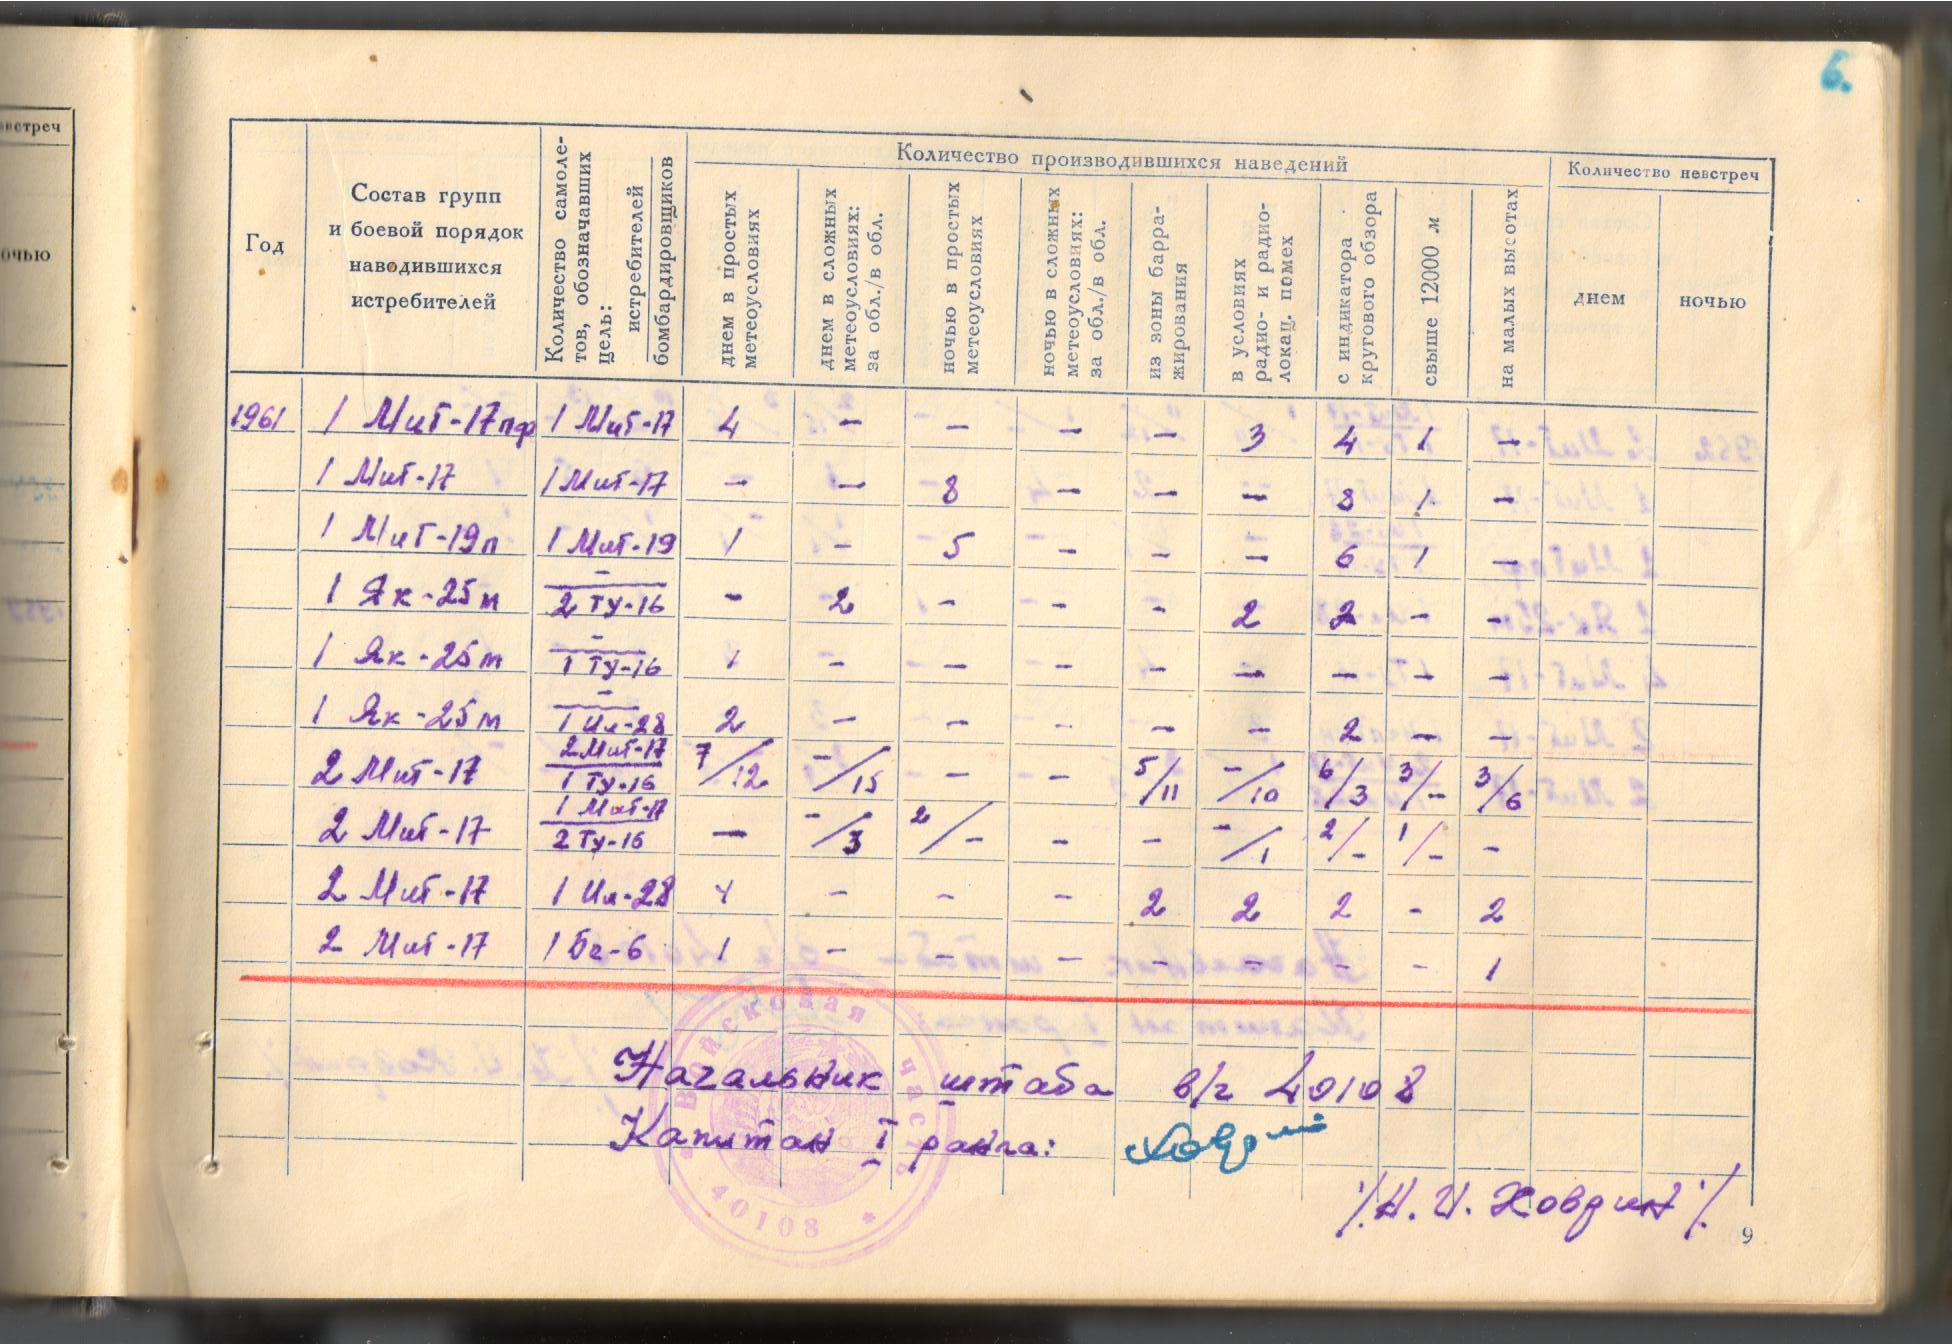 встреч
очью
6.
Год
Состав групп
и боевой порядок
наводившихся
истребителей
Количество самоле-
тов, обозначавших
цель:
истребителей
бомбардировщиков
Количество производившихся наведений
днем в простых
метеоусловиях
днем в сложных
метеоусловиях:
за обл./в обл.
ночью в простых
метеоусловиях
ночью в сложных
метеоусловиях:
за обл./в обл.
из зоны барра-
жирования
в условиях
радио- и радио-
локац. помех
с индикатора
кругового обзора
свыше 12000 м
на малых высотах
Количество невстреч
днем
ночью
1961 1 МиГ-17пф 1 МиГ-17 4 – – – – 3 4 1 –
1 МиГ-17 1 МиГ-17 – – 8 – – – 8 1 –
1 МиГ-19п 1 МиГ-19 1 – 5 – – – 6 1 –
1 Як-25м –/2 Ту-16 – 2 – – – 2 2 – –
1 Як-25м –/1 Ту-16 1 – – – – – – – –
1 Як-25м –/1 Ил-28 2 – – – – 2 – –
2 МиГ-17 2 МиГ-17/1 Ту-16 7/12 –/15 – – 5/11 –/10 6/3 3/– 3/6
2 МиГ-17 1 МиГ-17/2 Ту-16 – –/3 2/– – – –/1 2/– 1/– –
2 МиГ-17 1 Ил-28 4 – – – 2 2 2 – 2
2 МиГ-17 1 Бе-6 1 – – – – – – – 1
Начальник штаба в/ч 40108
Капитан I ранга:
/Н. И. Ховрин/
Войсковая часть
* 40108 *
9